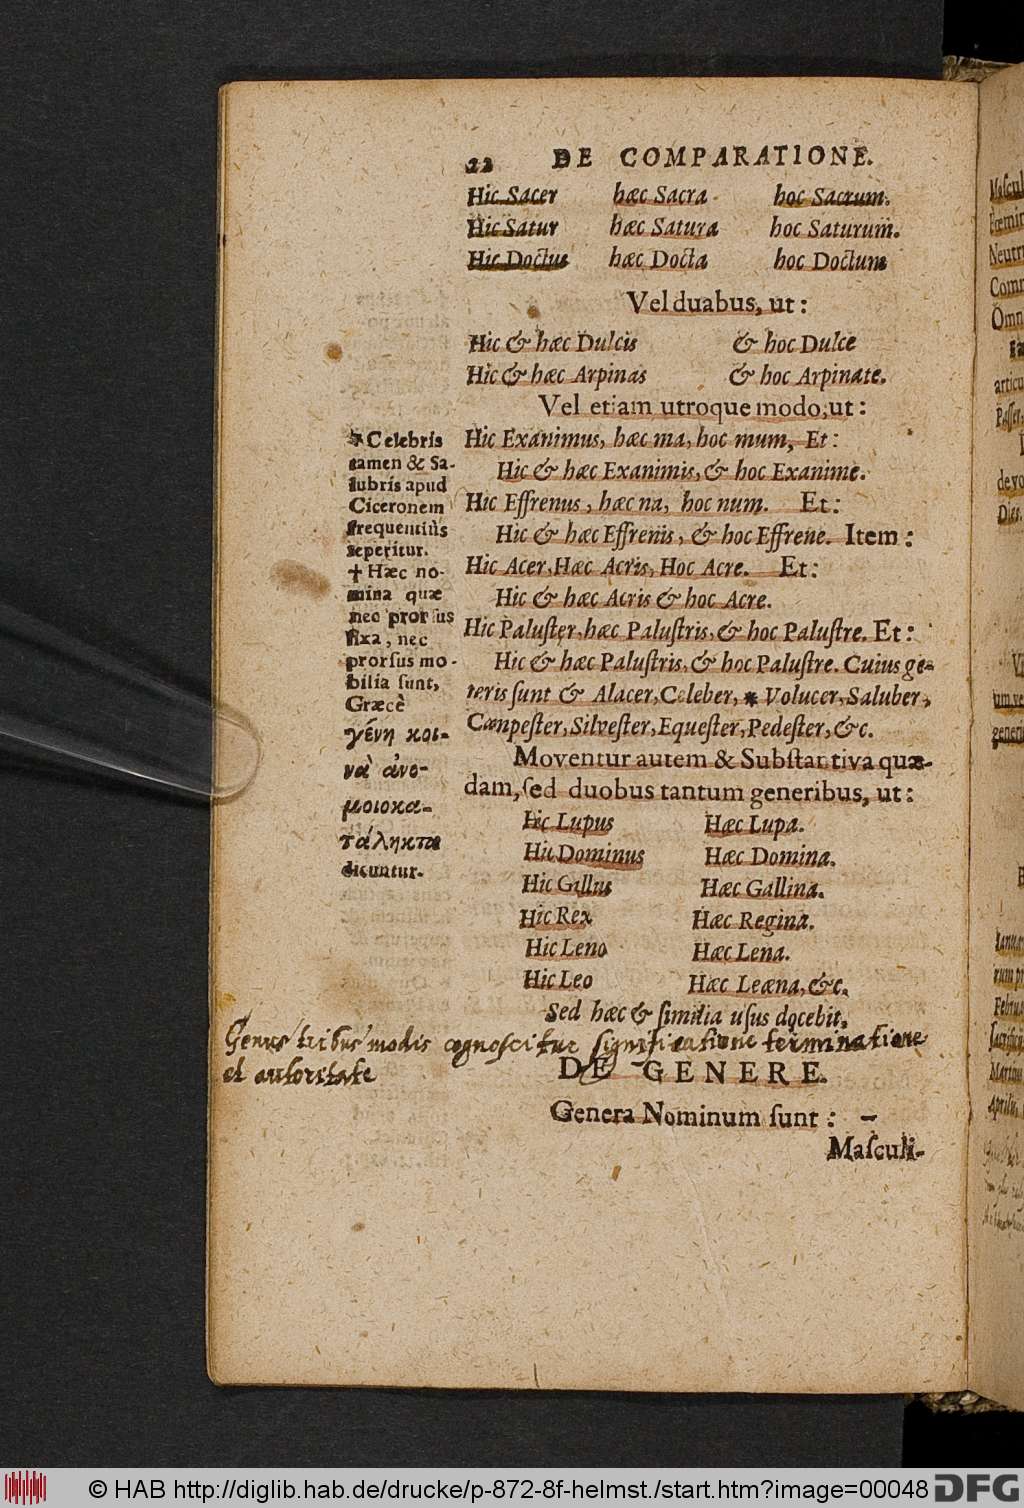 22 DE COMPARATIONE.
Hic Sacer hæc Sacra hoc Sacrum.
Hic Satur hæc Satura hoc Saturum.
Hic Doctus hæc Docta hoc Doctum
Vel duabus, ut:
Hic & hæc Dulcis & hoc Dulce
Hic & hæc Arpinas & hoc Arpinate.
Vel etiam utroque modo, ut:
Hic Exanimus, hæc ma, hoc mum, Et:
Hic & hæc Exanimis, & hoc Exanime.
Hic Effrenus, hæc na, hoc num. Et:
Hic & hæc Effrenis, & hoc Effrene. Item:
Hic Acer, Hæc Acris, Hoc Acre. Et:
Hic & hæc Acris & hoc Acre.
Hic Paluſter, hæc Paluſtris, & hoc Paluſtre. Et:
Hic & hæc Paluſtris, & hoc Paluſtre. Cuius ge-
neris ſunt & Alacer, Celeber, * Volucer, Saluber,
Campeſter, Silveſter, Equeſter, Pedeſter, &c.
Moventur autem & Subſtantiva quæ-
dam, ſed duobus tantum generibus, ut:
Hic Lupus Hæc Lupa.
Hic Dominus Hæc Domina.
Hic Gallus Hæc Gallina.
Hic Rex Hæc Regina.
Hic Leno Hæc Lena.
Hic Leo Hæc Leæna, &c.
Sed hæc & ſimilia uſus docebit.
* Celebris
tamen & Sa-
lubris apud
Ciceronem
frequentiùs
reperitur.
† Hæc no-
mina quæ
nec prorſus
fixa, nec
prorſus mo-
bilia ſunt,
Græcè
γένη κοι-
νὰ ἀνο-
μοιοκα-
τάληκτα
dicuntur.
Genus tribus modis cognoscitur significatione terminatione
et autoritate
DE GENERE.
Genera Nominum ſunt: –
Maſculi-
© HAB http://diglib.hab.de/drucke/p-872-8f-helmst./start.htm?image=00048 DFG